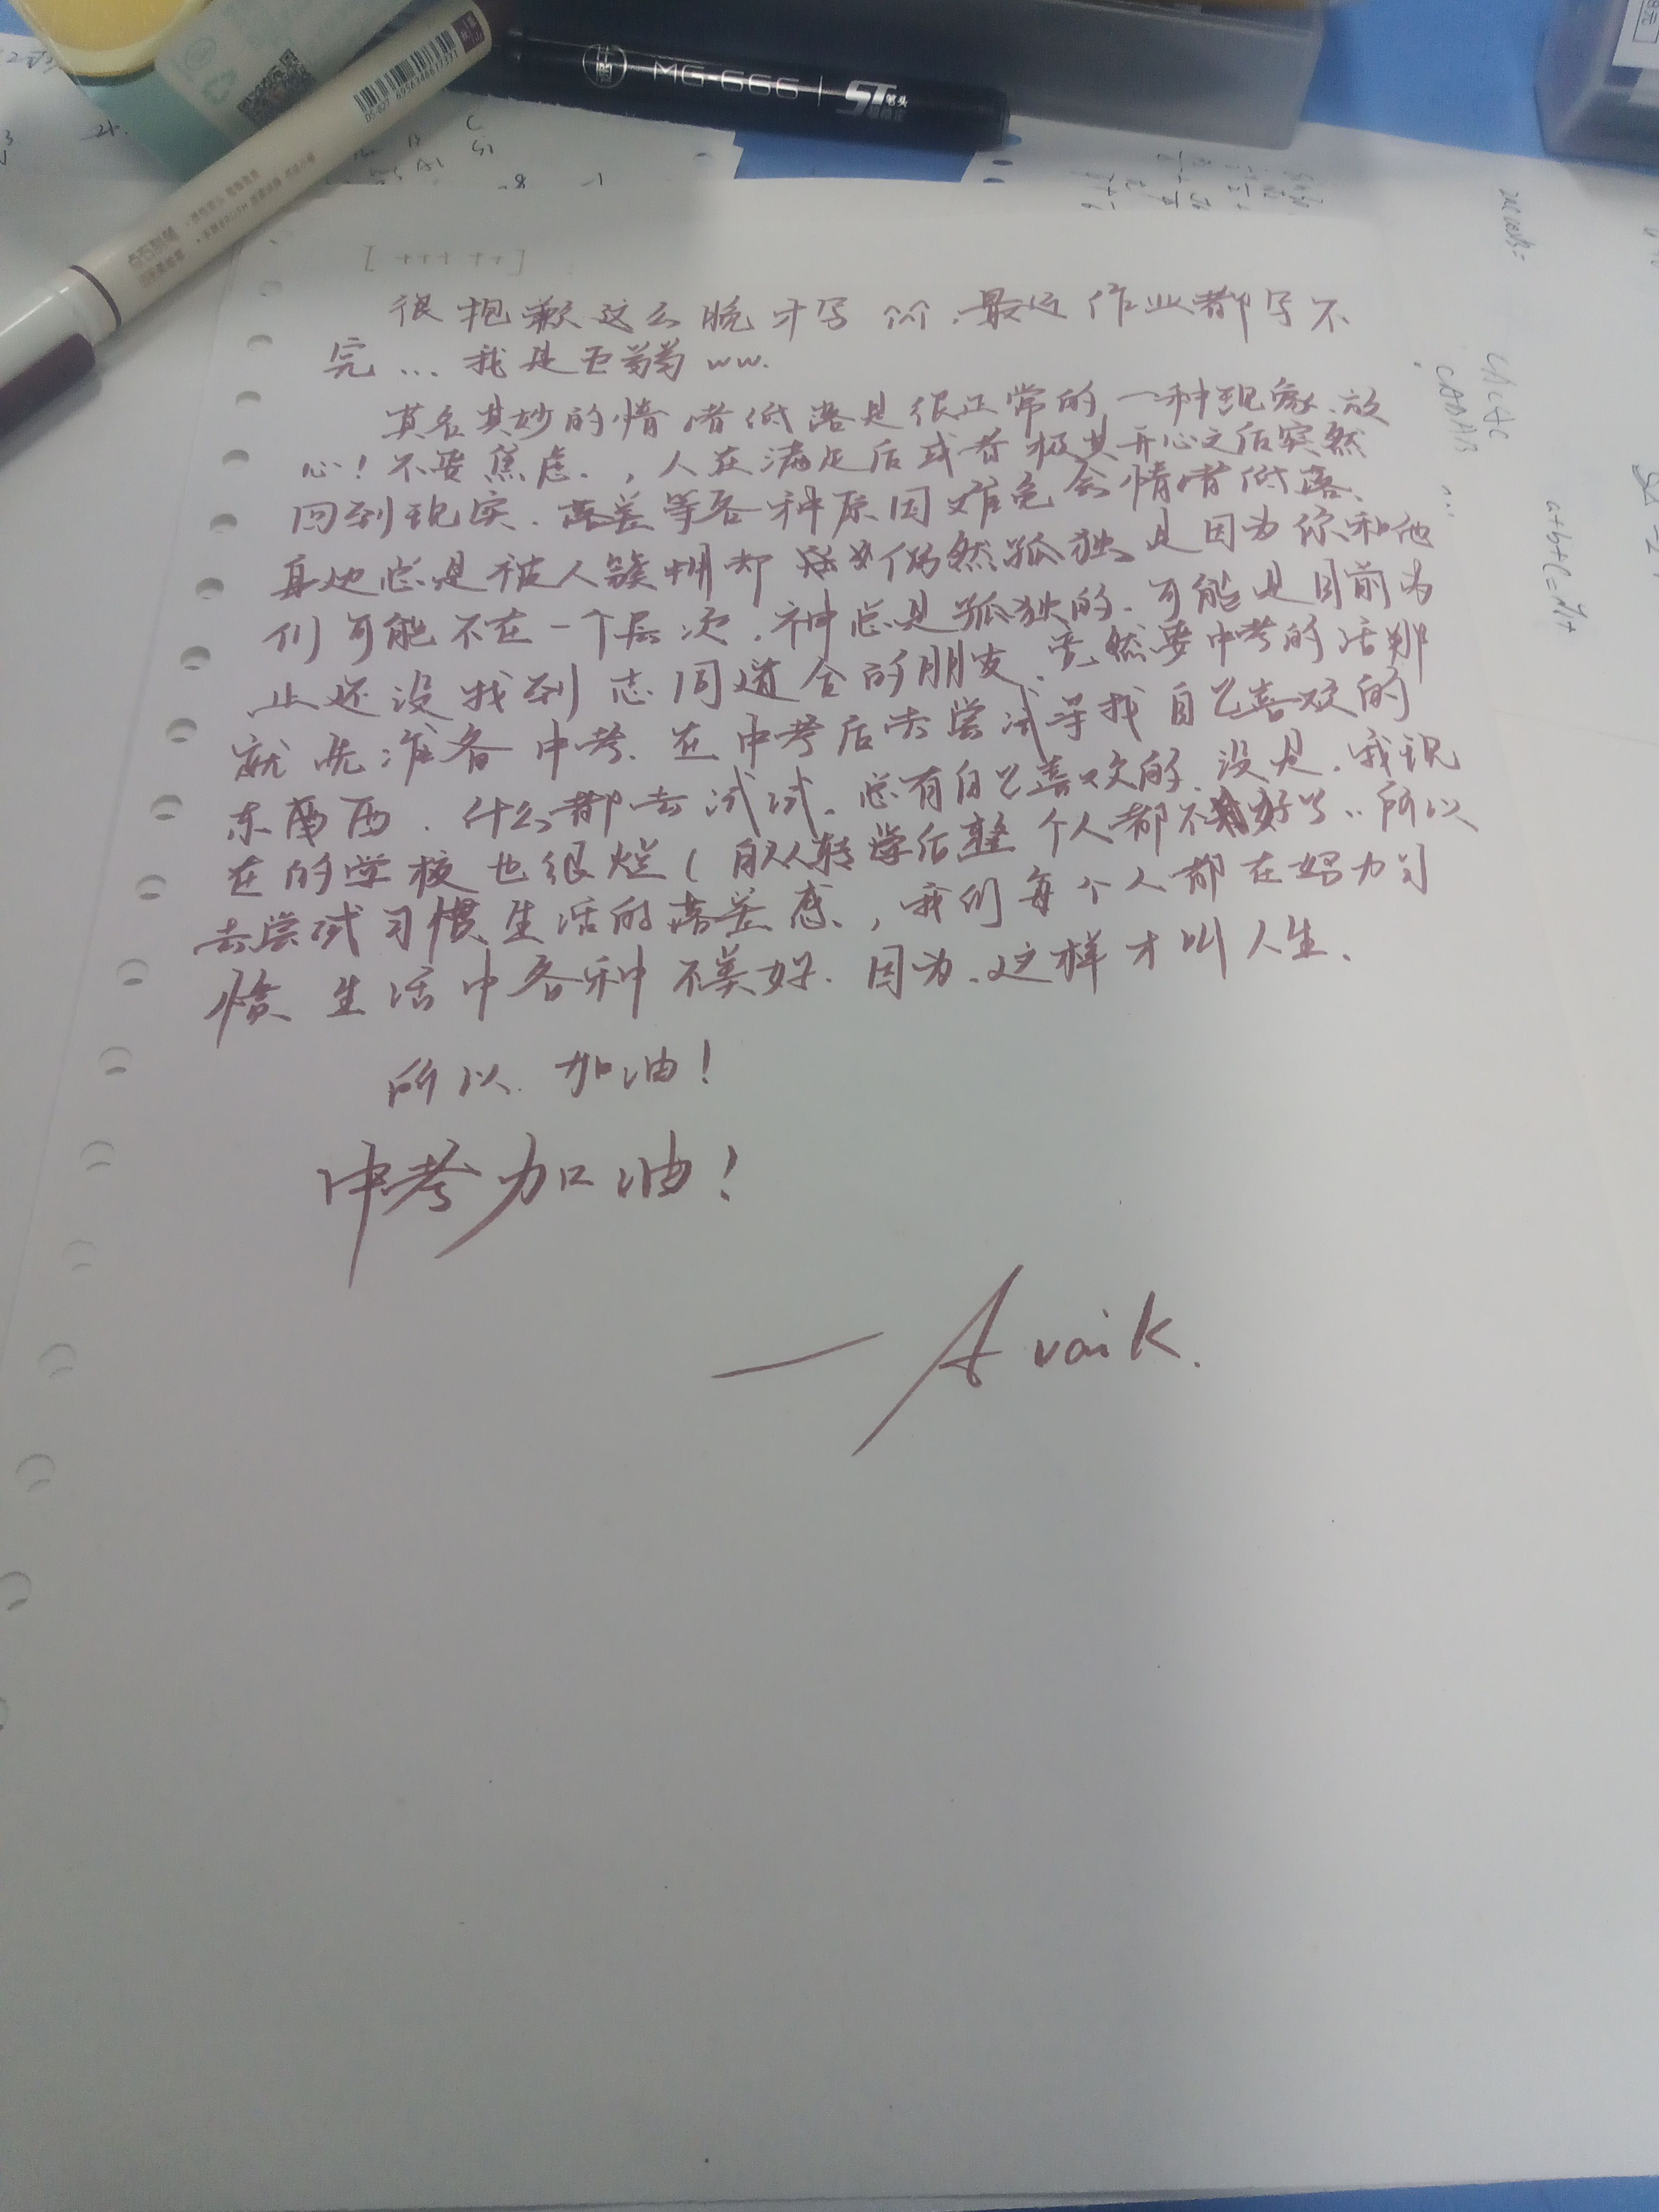 MG-666 | ST笔头
6956748617331
[ +++ ++ ]
很抱歉这么晚才写 . 最近作业都写不
完 ... 我是 ww.
莫名其妙的情绪低落是很正常的一种现象. 放
心! 不要焦虑. , 人在满足后或者极其开心之后突然
回到现实. 落差等各种原因难免会情绪低落.
身边总是被人簇拥却 仍然孤独. 是因为你和他
们可能不在一个层次. 神总是孤独的. 可能是目前为
止还没找到志同道合的朋友. 竟然要中考的话那
就先准备中考. 在中考后去尝试寻找自己喜欢的
东西. 什么都去试试. 总有自己喜欢的. 没是. 我现
在的学校也很烂 ( 自从转学后整个人都不好了.. 所以
去尝试习惯生活的落差感. , 我们每个人都在努力习
惯生活中各种不美好. 因为. 这样才叫人生.
所以. 加油!
中考加油!
— Avaik.
a+b+c=